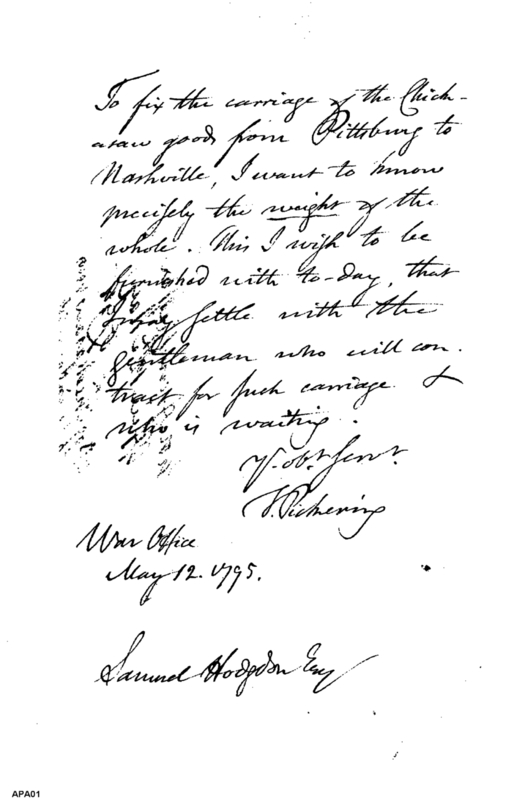 To fix the carriage of the Chick-
asaw goods from Pittsburg to
Nashville, I want to know
precisely the weight of the
whole. This I wish to be
furnished with to-day, that
I may settle with the
gentleman who will con-
tract for such carriage &
who is waiting.
Yr. obt. servt.
T. Pickering
War Office
May 12. 1795.
Samuel Hodgdon Esq
APA01